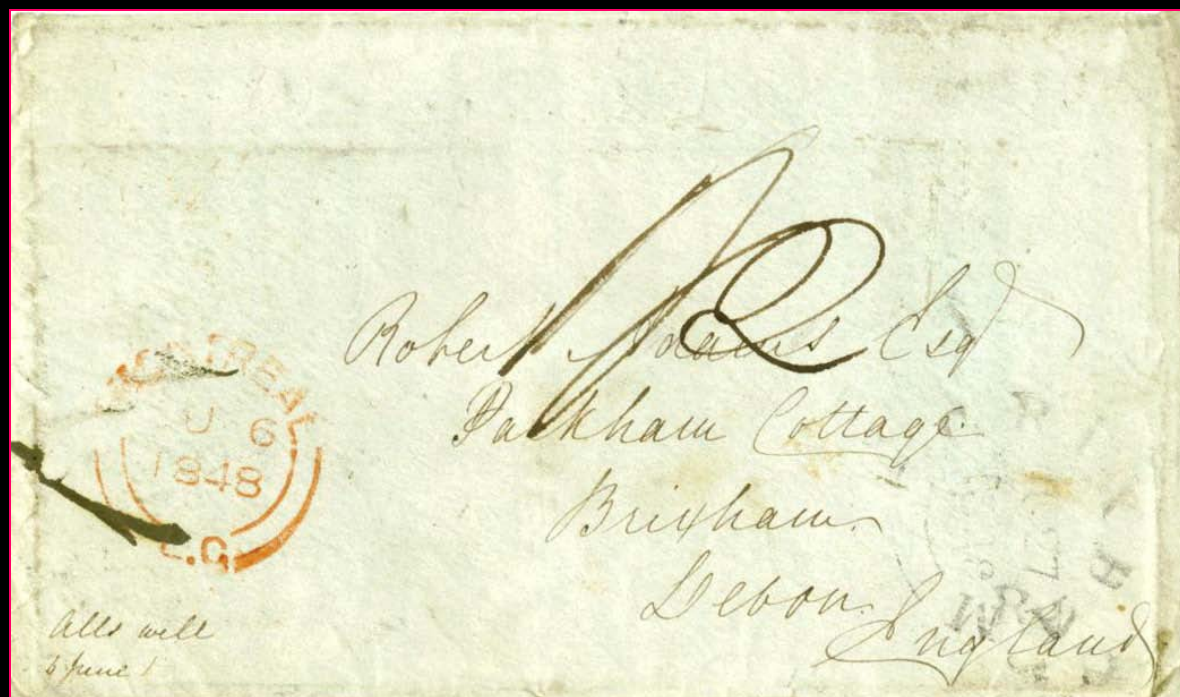 1/2
Robert Adams Esq
Parkham Cottage
Brixham
Devon
England
MONTREAL
JU 6
1848
L.C.
Alls well
6 June